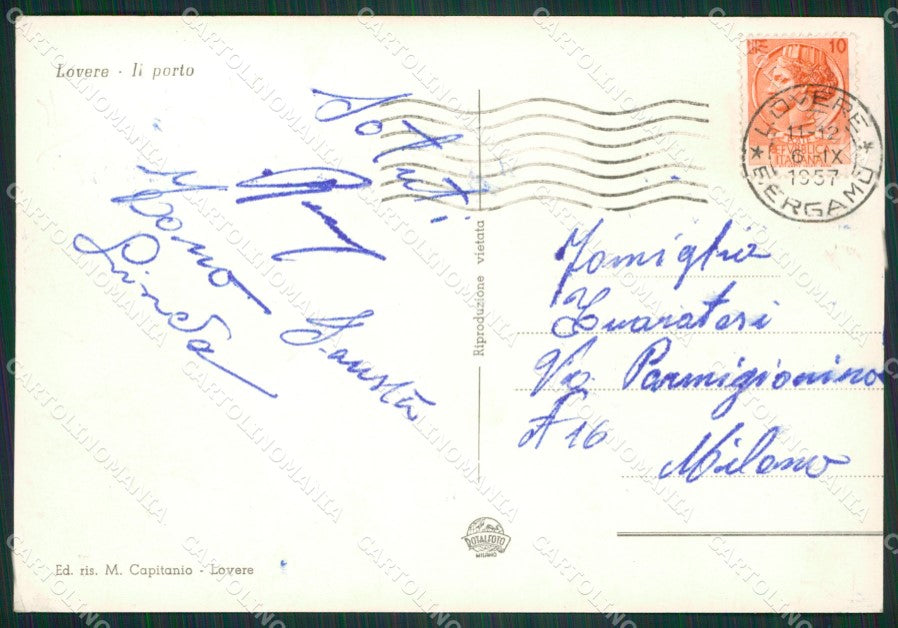 Lovere - Il porto
Saluti
Fausta
Linda
Riproduzione vietata
10
LOVERE
11-12
6-IX
1957
BERGAMO
REPUBBLICA
ITALIANA
Famiglia
Via Parmigianino
A 16
Milano
ROTALFOTO
MILANO
Ed. ris. M. Capitanio - Lovere
CARTOLINOMANIA